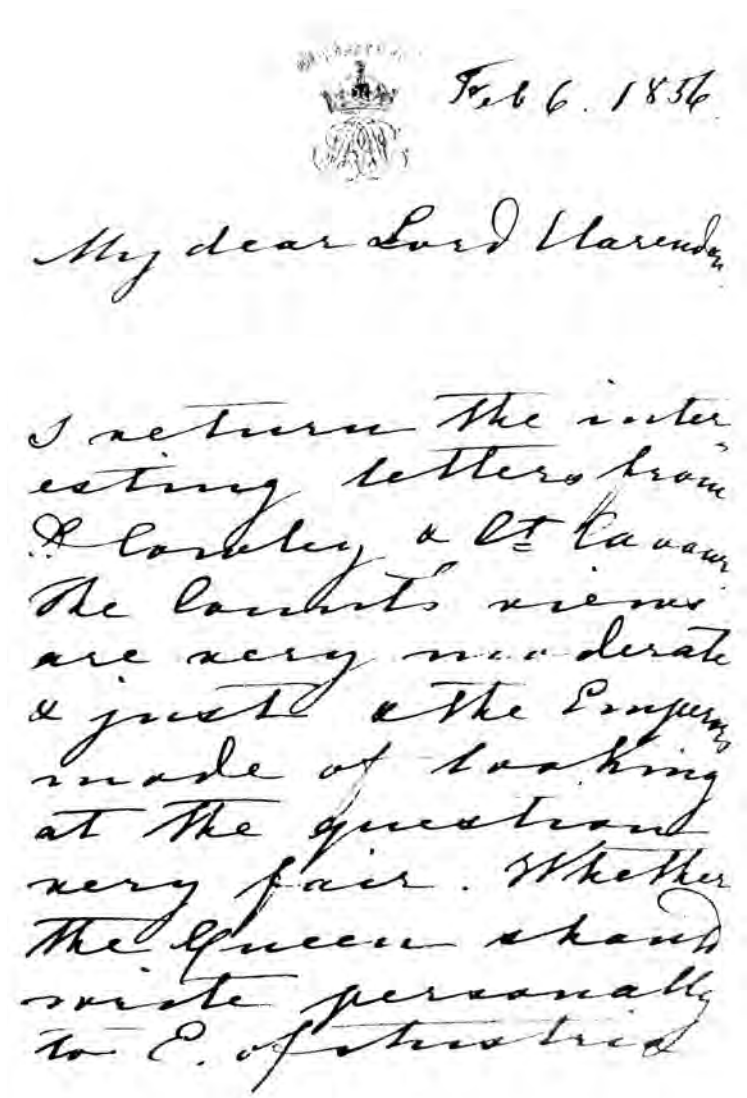 Feb 6. 1856
My dear Lord Clarendon
I return the inter
esting letters from
Ld Cowley & Ct Cavour
The Count's views
are very moderate
& just & the Emperors
mode of looking
at the question
very fair. Whether
the Queen should
write personally
to E. of Austria